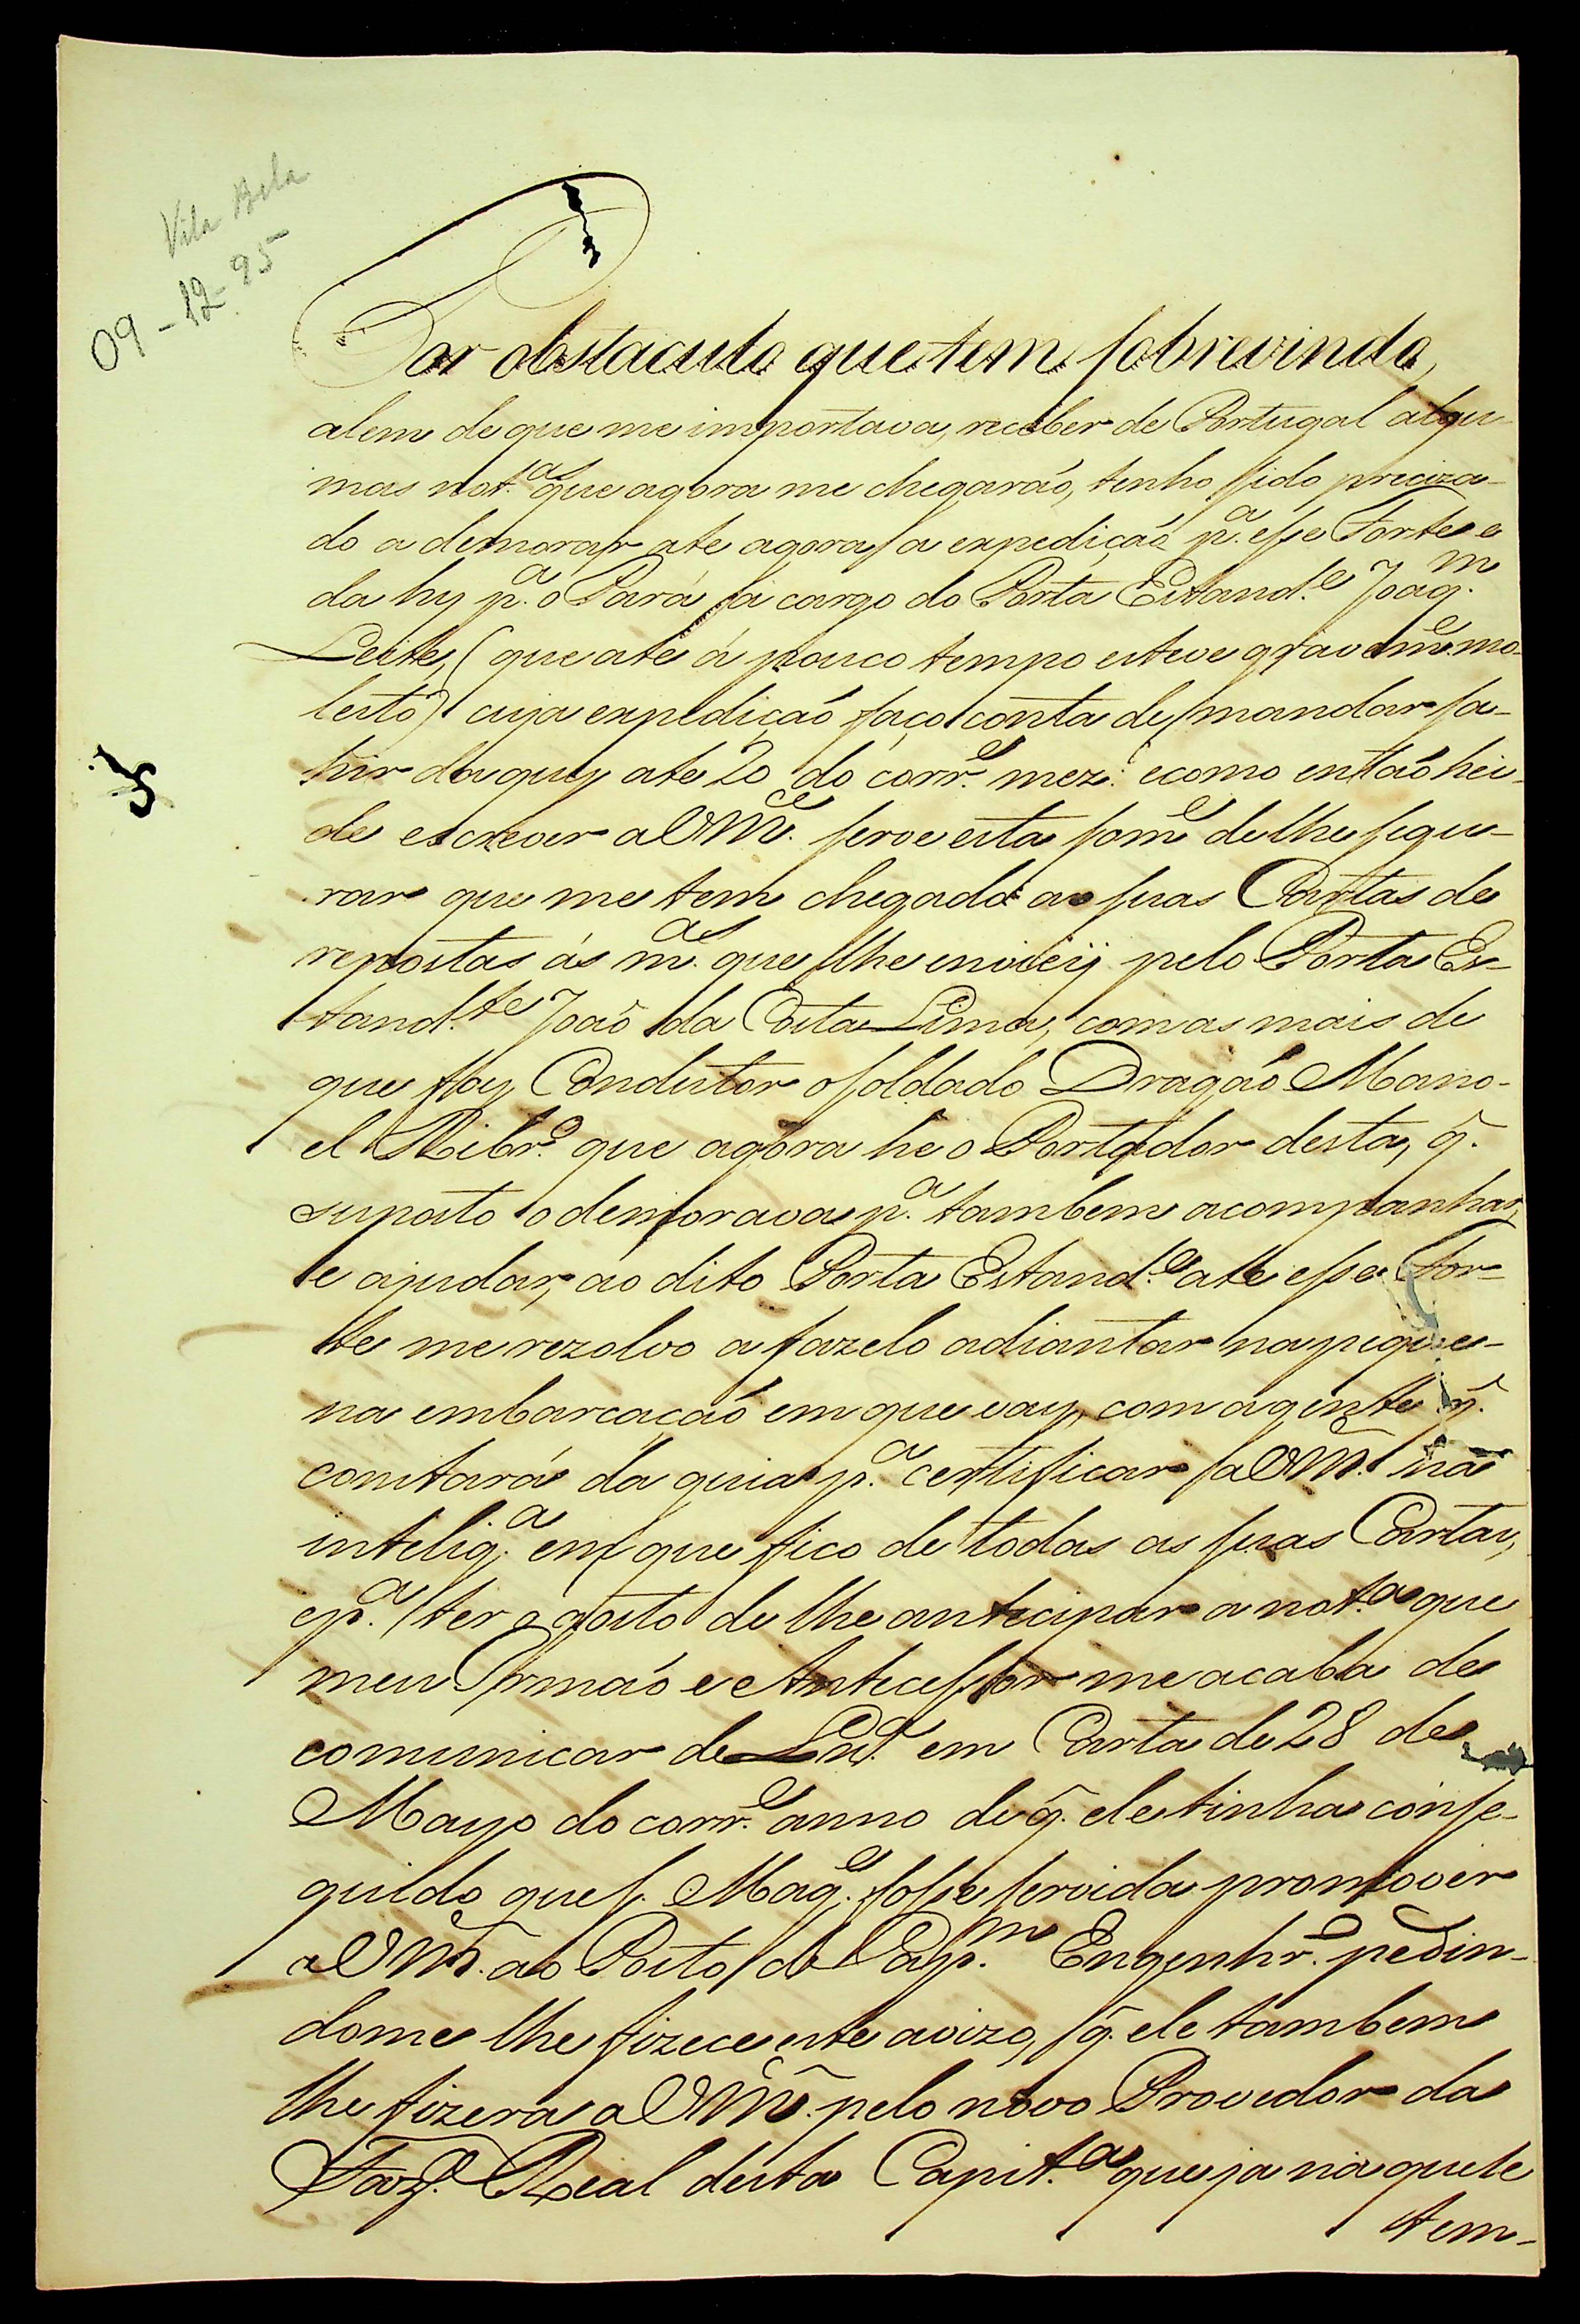 Vila Bela
09-12-95
Por obstaculo que tem sobrevindo,
alem de que me importava, receber de Portugal algu-
mas not.as que agora me chegaraó, tenho sido preciza-
do a demorar ate agora a expediçaó p.a esse Forte e
da hy p.a o Pará a cargo do Porta Estand.e Joaq.m
Leite, (que ate á pouco tempo esteve gravem.e mo-
lesto) cuja expediçaó faço conta de mandar sa-
hir da quy ate 20 do corr.e mez: e como entaó hei-
de escrever a VM.ce serve esta som.e de lhe segu-
rar que me tem chegado as suas Cartas de
repostas ás m.as que lhe inviey pelo Porta Es-
tand.te Joaó da Costa Lima, com as mais de
que foy Condutor o soldado Dragaó Mano-
el Ribr.o que agora he o Portador desta, q̃.
suposto o demorava p.a tambem acompanhar,
e ajudar, ao dito Porta Estand.e ate esse For-
te me rezolvo a fazelo adiantar na peque-
na embarcaçaó em que vay, com a gente q̃.
constará da guia p.a certificar a VM.ce na
intelig.a em que fico de todas as suas Cartas,
e p.a ter o gosto de lhe antecipar a not.a que
meu Irmaó e Antecessor me acaba de
comunicar de Lx.a em Carta de 28 de
Mayo do corr.e anno de q̃. ele tinha conse-
guido que S. Mag.e fosse servida promover
a VM.ce ao Posto de Cap.m Engenhr.o pedin-
dome lhe fizece este avizo, q̃. ele tambem
lhe fizera a VM.ce pelo novo Provedor da
Faz.a Real desta Capit.a que ja naquele
tem-